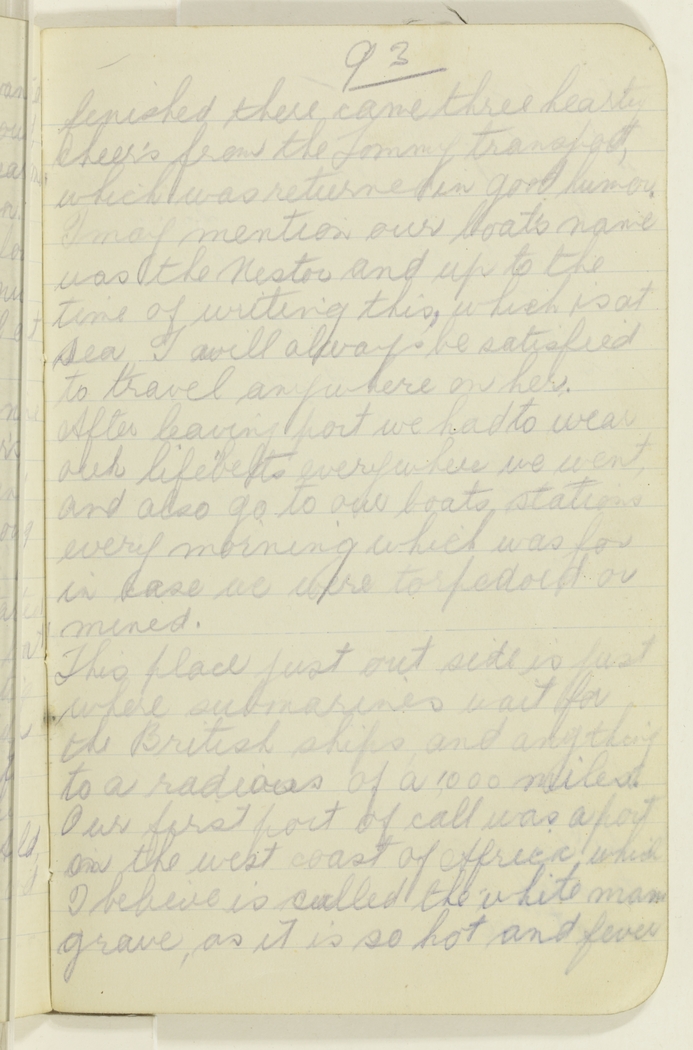 93
finished there came three hearty
cheers from the Tommy transport,
which was returned in good humor.
I may mention our boats name
was the Nestor and up to the
time of writing this, which is at
sea I will always be satisfied
to travel anywhere on her.
After leaving port we had to wear
our lifebelts everywhere we went,
and also go to our boats stations
every morning which was for
in case we were torpedoed or
mined.
This place just out side is just
where submarines wait for
the British ships, and anything
to a radious of a 1000 miles.
Our first port of call was a port
on the west coast of Africa, which
I believe is called the white mans
grave, as it is so hot and fever